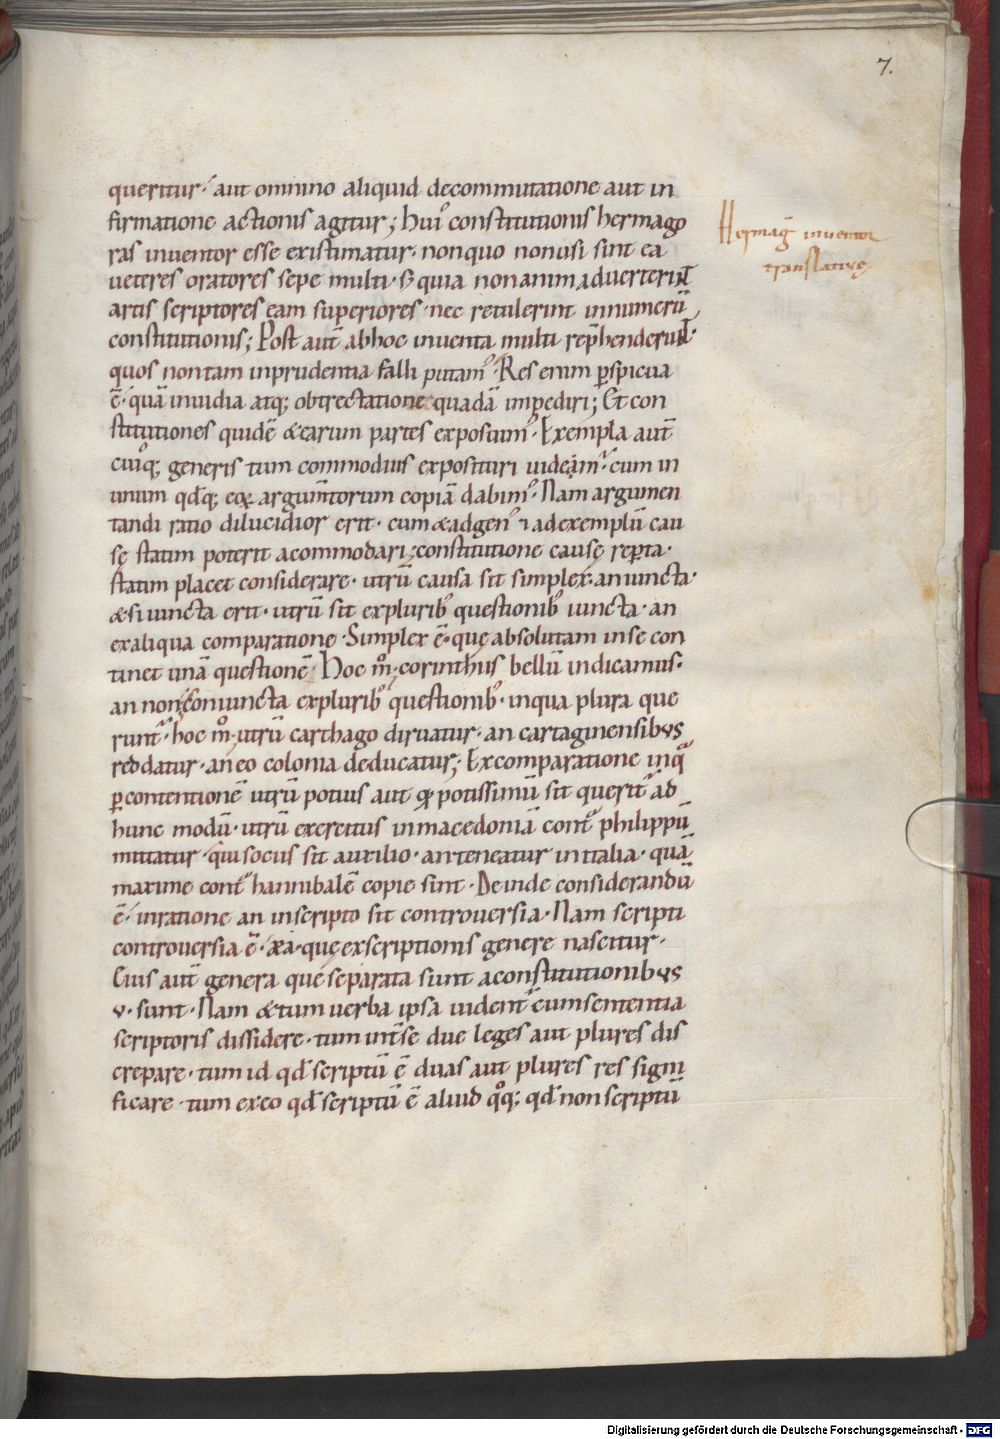 7.
queritur· aut omnino aliquid decommutatione aut in
firmatione actionis agitur; huiꝰ constitutionis hermago
ras inuentor esse existimatur· nonquo nonusi sint ea
ueteres oratores sepe multi· s; quia nonanimaduerterunt
artis scriptores eam superiores· nec retulerint innumerū
constitutionis; Post aut̄ abhoc inuenta multi rep̄henderunt·
quos nontam inprudentia falli putamꝰ· Res enim ꝑspicua
ē· quā inuidia atq; obtrectatione quadā impediri; Et con
stitutiones quidē &earum partes exposuimꝰ· Exempla aut̄
cuiꝰq; generis tum commodius exposituri uidemur· cum in
unum qd̄q; eoꝝ argum̄torum copiā dabimꝰ· Nam argumen
tandi ratio dilucidior erit· cum &adgenꝰ ⁊ adexemplū cau
sę statim poterit acommodari; constitutione causę reperta·
statim placet considerare· utrū causa sit simplex· aniuncta·
&siiuncta erit· utrū sit expluribꝰ questionibꝰ iuncta· an
exaliqua comparatione· Simplex ē· quę absolutam inse con
tinet unā questionē· Hoc m̊· corinthiis bellū indicamus·
an non; Coniuncta expluribꝰ questionibꝰ· inqua plura que
runt᷑· hoc m̊· utrū carthago diruatur· an cartaginensibus
reddatur· aneo colonia deducatur; Excomparatione inqua
ꝑcontentionē utrū potius aut qd̄ potissimū sit querit᷑ ad
hunc modū· utrū exercitus inmacedoniā contᷓ philippū
mittatur· qui sociis sit auxilio· anteneatur initalia· quā
maxime contᷓ hannibalē copie sint· Deinde considerandū
ē· inratione an inscripto sit controuersia· Nam scripti
controuersia ē· ea· que exscriptionis genere nascitur·
Cuius aut̄ genera que separata sunt aconstitutionibus
v· sunt· Nam &tum uerba ipsa uident᷑ cumsententia
scriptoris dissidere· tum int̄se due leges aut plures dis
crepare· tum id qd̄ scriptū ē duas aut plures res signi
ficare· tum exeo qd̄ scriptū ē aliud qͦq; qd̄ non scriptū
Hermag᷑ inuentor
translatiuę
Digitalisierung gefördert durch die Deutsche Forschungsgemeinschaft - DFG